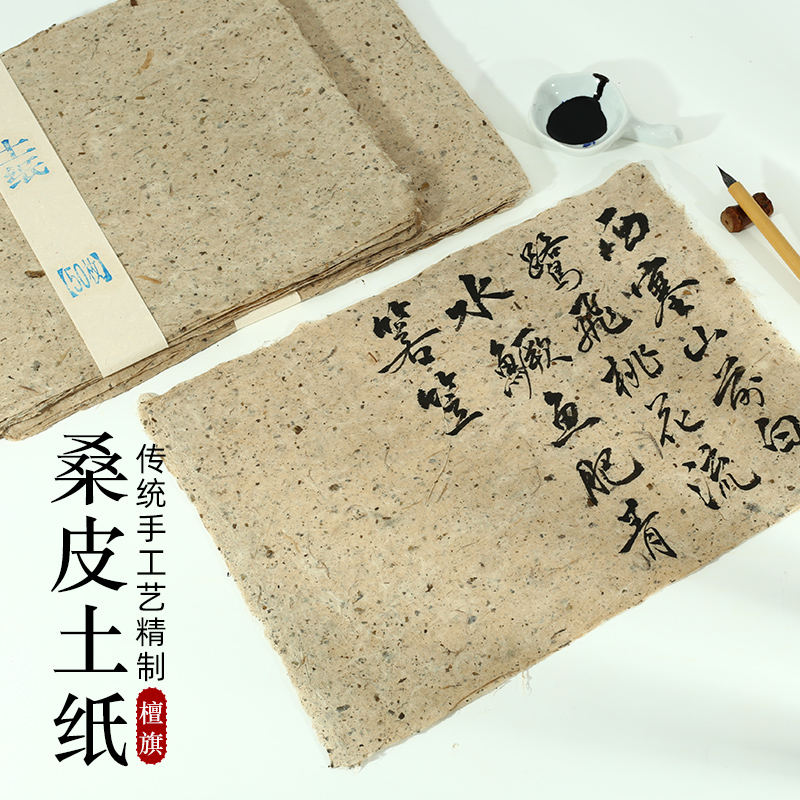 土纸
【50枚】
西塞山前白
鷺飛桃花流
水鱖鱼肥青
箬笠
桑皮土纸
传统手工艺精制
檀旗